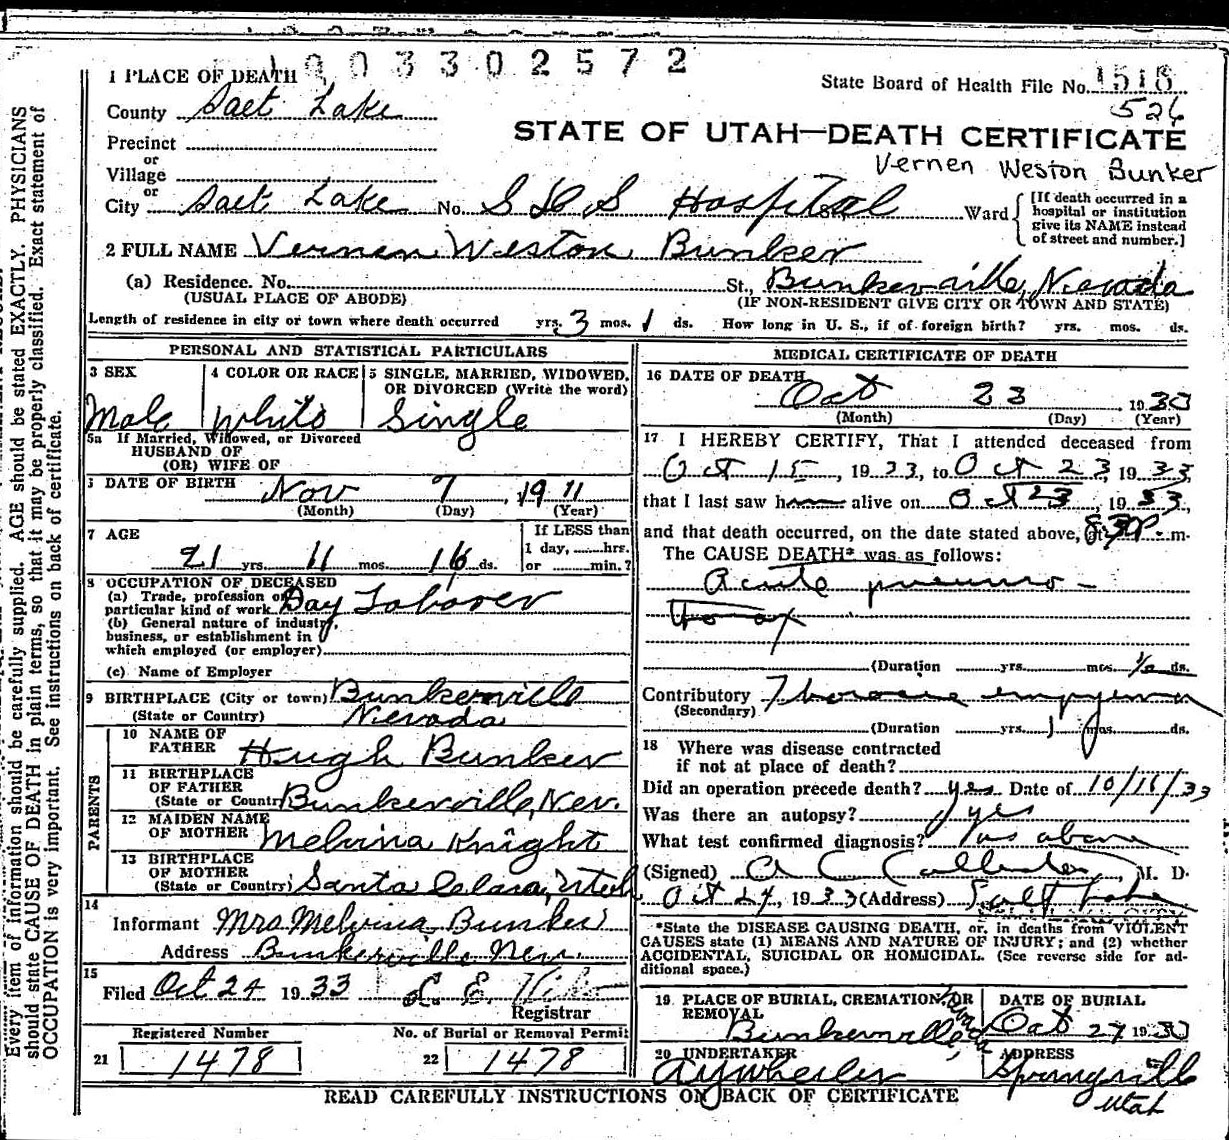 1003302572
1 PLACE OF DEATH
State Board of Health File No. 1518
526
County Salt Lake
STATE OF UTAH—DEATH CERTIFICATE
Precinct
or
Village
Vernen Weston Bunker
or
City Salt Lake No. S L G S Hospital Ward
[If death occurred in a hospital or institution give its NAME instead of street and number.]
2 FULL NAME Vernen Weston Bunker
(a) Residence. No. St., Bunkerville, Nevada
(USUAL PLACE OF ABODE) (IF NON-RESIDENT GIVE CITY OR TOWN AND STATE)
Length of residence in city or town where death occurred yrs. 3 mos. 1 ds. How long in U. S., if of foreign birth? yrs. mos. ds.
PERSONAL AND STATISTICAL PARTICULARS
3 SEX 4 COLOR OR RACE 5 SINGLE, MARRIED, WIDOWED,
OR DIVORCED (Write the word)
Male White Single
5a If Married, Widowed, or Divorced
HUSBAND OF
(OR) WIFE OF
6 DATE OF BIRTH Nov 7, 1911
(Month) (Day) (Year)
7 AGE If LESS than
1 day, hrs.
21 yrs. 11 mos. 16 ds. or min.?
8 OCCUPATION OF DECEASED
(a) Trade, profession or
particular kind of work Day Laborer
(b) General nature of industry,
business, or establishment in
which employed (or employer)
(c) Name of Employer
9 BIRTHPLACE (City or town) Bunkerville
(State or Country) Nevada
PARENTS
10 NAME OF
FATHER Hugh Bunker
11 BIRTHPLACE
OF FATHER
(State or Country) Bunkerville, Nev.
12 MAIDEN NAME
OF MOTHER Melvina Knight
13 BIRTHPLACE
OF MOTHER
(State or Country) Santa Clara, Utah
14
Informant Mrs Melvina Bunker
Address Bunkerville Nev.
15
Filed Oct 24 1933 L. E.
Registrar
Registered Number No. of Burial or Removal Permit
21 1478 22 1478
MEDICAL CERTIFICATE OF DEATH
16 DATE OF DEATH
Oct 23, 1933
(Month) (Day) (Year)
17 I HEREBY CERTIFY, That I attended deceased from
Oct 15, 1933, to Oct 23, 1933,
that I last saw h alive on Oct 23, 1933,
and that death occurred, on the date stated above, at 8:30 P. m.
The CAUSE DEATH* was as follows:
Acute pneumo-
thorax
(Duration yrs. mos. ½ ds.
Contributory Thoracic empyema
(Secondary)
(Duration yrs. 1 mos. ds.
18 Where was disease contracted
if not at place of death?
Did an operation precede death? yes Date of 10/16/33
Was there an autopsy? yes
What test confirmed diagnosis? as above
(Signed) A C Callister, M. D.
Oct 24, 1933 (Address) Salt Lake
*State the DISEASE CAUSING DEATH, or, in deaths from VIOLENT
CAUSES state (1) MEANS AND NATURE OF INJURY; and (2) whether
ACCIDENTAL, SUICIDAL OR HOMICIDAL. (See reverse side for ad-
ditional space.)
19 PLACE OF BURIAL, CREMATION, OR DATE OF BURIAL
REMOVAL
Bunkerville, Nevada Oct 27 1933
20 UNDERTAKER ADDRESS
A Y Wheeler Springville
Utah
READ CAREFULLY INSTRUCTIONS ON BACK OF CERTIFICATE
Every item of information should be carefully supplied. AGE should be stated EXACTLY. PHYSICIANS
should state CAUSE OF DEATH in plain terms, so that it may be properly classified. Exact statement of
OCCUPATION is very important. See instructions on back of certificate.